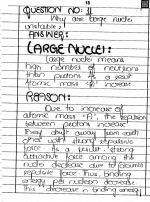 18
QUESTION NO: 11
Why are large nuclei
unstable?
ANSWER:
LARGE NUCLEI:
Large nuclei means
high number of neutrons
than protons as a result
Atomic mass "A" increase.
REASON:
Due to increase of
atomic mass "A", the repulsion
between protons increase.
They drift away from each
other with strong repulsive
force. As a result, strong
attractive force among the
nuclei decrease due to
repulsive force. Thus, binding
energy per nucleon decrease.
This decrease in binding energy